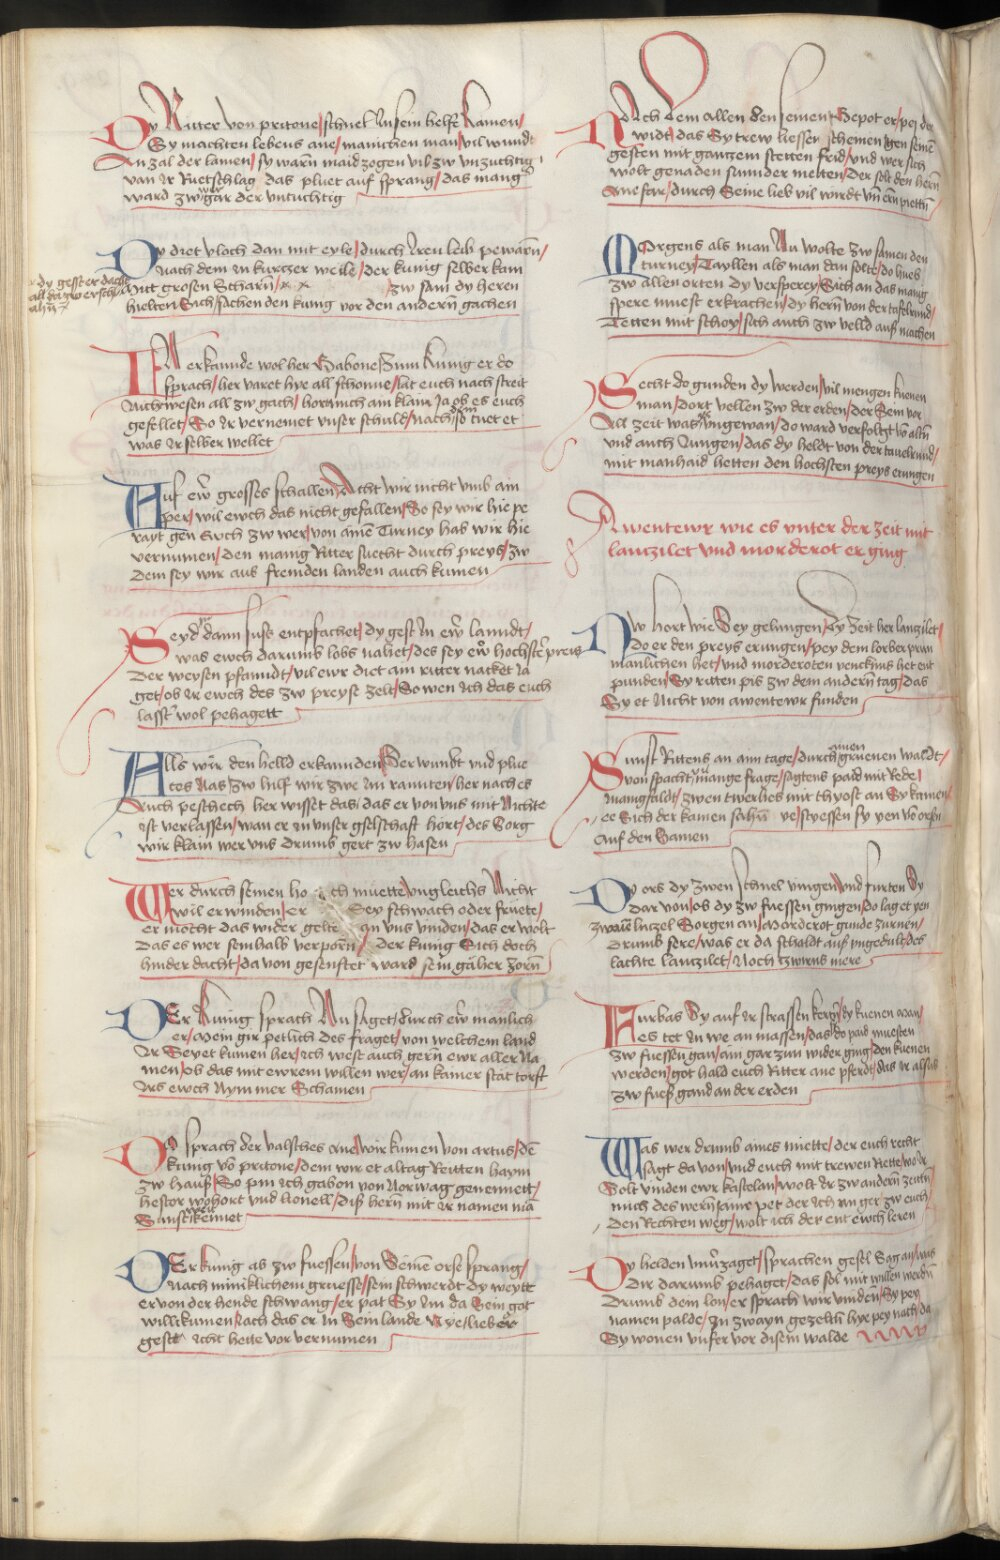 Dy Ritter von pritone / schnel In sein helfe kamen /
Sy machten lebens ane / manichen man / vil wundt
An zal der lamen / sy warn maidzogen vil zw vnzuchtig /
van Ir Ruetschlag / das pluet auf sprang / das mang
ward zw gar der vntuchtig
Dy diet vloch dan mit eyle / durch Iren leib pewarn /
Nach dem in kurtzer weile / der kunig selber kam
mit grosen Scharn / zw sam dy heren
hielten Sich / sachen den kung vor den andern gachen
dy gest er dacht
all da zw ersch
Er kannde wol her Gabone / Zum kunig er do
sprach / her varet hye all schonne / lat euch nach streit
Nicht wesen all zw gach / hort mich am klain Ja ob es euch
gefellet / So Ir vernemet vnser schuld / nach dem so tuet et
was Ir selber wellet
Auf ew grosses schallen / Acht wir nicht vmb ain
per / wil ewch das nicht gefallen / So sey wir hie pe
rayt gen Euch zw wer / von aine Turney hab wir hie
vernumen / den manig Ritter suecht durch preys / zw
dem sey wir aus fremden landen auch kumen
Seyd ir dann sust entpfachet / dy gest In ew lanndt /
was ewch darumb lobs nahet / des sey ew hochster preis
Der weysen pfanndt / vil ewr diet ain ritter nacket Ja
get / ob Ir ewch des zw preyse zelt / So wen Ich das euch
lasst wol pehagett
Alls wir den helld erkannden / Der wundt vnd plue
tes Nas / zw hilf wir zwe Im rannten / her nach es
Auch peschech her wisset das / das er von vns mit Nichte
ist verlassen / wan er in vnser gselschaft hort / des Sorg
wir klain wer vns drumb gert zw hasen
Wer durch seinen hochmuette / vngleichs Nicht
wil erwinden / er Sey schwach oder fruete /
er mocht das wider gelte an vns vinden / das er wolt
Das es wer seinhalb verporn / Der kunig Sich doch
hinder dacht / da von gesenftet ward sein gaher zorn
DEr kunig sprach Nu saget / durch ew manlich
er / Mein gir petlich des fraget / von welchem land
Ir Seyet kumen her / ich west auch gern ewr aller Na
men / ob das mit ewrem willen wer / an kainer stat torft
Irs ewch Nymmer Schamen
Do sprach der valsches ane / wir kumen von artus / de
kunig vo pritone / dem wir et altag Reitten haym
zw hauß / So pin ich gabon von Norwag genennett /
hestor wohort vnd lionell / diß hern mit Ir namen ma
Sunst weit kennet
DEr kunig ab zw fuessen / von Seine orse sprang /
Nach minniklichem gruesse / sein schwerdt dy weytt
er von der hende schwang / er pat Sy Im da Sein got
willikumen / Jach das er in Sein lande Nye lieber
geste Icht hette vor vernumen
Nach dem allen den seinen / Gepot er / pej der
widt / das Sy trew liessen scheinen / gen seine
gesten mit gantzem stetten frid / vnd wer sich
wolt genaden sunder melten / Der solt den hern
ane far / durch Seine lieb vil wirdt vn ern pietten
MOrgens als man Nu wolte zw samen den
turney / Tayllen als man dan solte / do hues
zw allen orten dy vesperey / Sich an das manig
spere muest erkrachen / dy hern von der tafelrund /
Tetten mit schoy / sich auch zw velld auf machen
Secht do gunden dy werden / vil mengen kuenen
man / dort vellen zw der erden / der Sein vor
All zeit was vngewan / do ward verfolgt vo alten
vnd auch Jungen / das dy heldt von der tauelrund /
mit manhaid hetten den hochsten preys erungen
Awentewr wie es vnter der zeit mit
lanzilet vnd morderot erging
Nw hort wie Sey gelungen / Dy zeit her lanzilet /
Do er den preys erungen / pey dem lorber prun
manlichen het / vnd morderoten vencknus het ent
punden / Sy ritten pis zw dem andern tag / das
Sy et Nicht von awentewr funden
Sunst Rittens an ain tage / durch ainen gruenen waldt /
von spacht in mange frage / sagtens paid mit Rede /
manigfaldt / zwen twerhes mit thyost an Sy kamen /
ee Sich der kamen sahn ye / styessen sy yen vo orsen
Auf den Samen
Dy ors dy zwen schnel viengen / vnd furten Sy
Dar von / ob dy zw fuessen gingen / do lag et yen
zwain luczel Sorgen an / Morderot gunde zurnen /
Drumb sere / was er da scholdt auf vngedult / des
lachte lanzilet / Noch tzwirns mere
Furbas Sy auf Ir strassen kern / dy kuenen man /
es tet In we an massen / das do paid muesten
zw fuessen gan / ain gar zun wider ging / den kuenen
werden / got hald euch Ritter ane pferdt / das Ir alsus
zw fueß gand an der erden
Was wer drumb aines miette / der euch recht
sagt da von / vnd euch mit trewen Rette / wo Ir
Solt vinden ewr kastelan / wolt Ir zw andern zeitn /
mich des wern
Den Rechten weg / wolt ich der ent ewch leren
Dy helden vnuerzaget / sprachen gesel Sag an / was
Dir darumb pehaget / das sol mit willen werden
Drumb dein lon / er sprach wir vinden / Sy pey
namen palde / In zwayn gezeltn hye pey nach / da
Sy wonen vnser vor disem walde